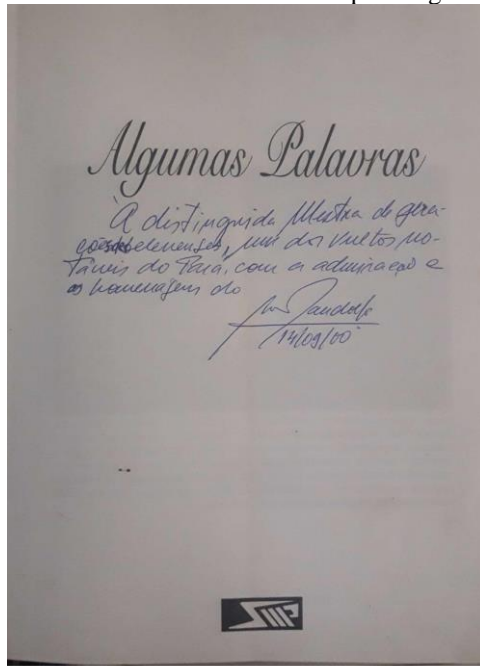 Algumas Palavras
À distinguida Mestra de gera-
ções belenenses, um dos vultos no-
táveis do Pará, com a admiração e
as homenagens do
14/09/00